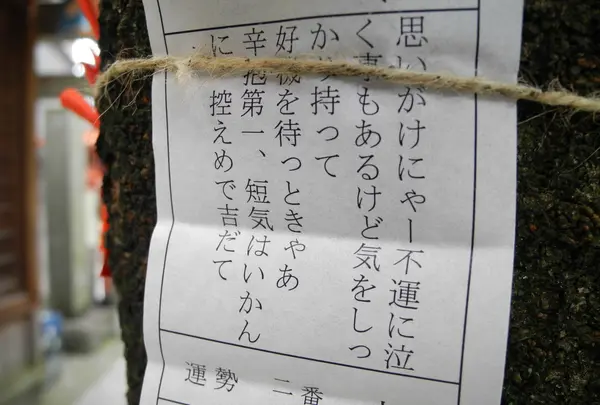 思いがけにゃー不運に泣
く事もあるけど気をしっ
かり持って
好機を待っときゃあ
辛抱第一、短気はいかん
に控えめで吉だて
運勢 二番